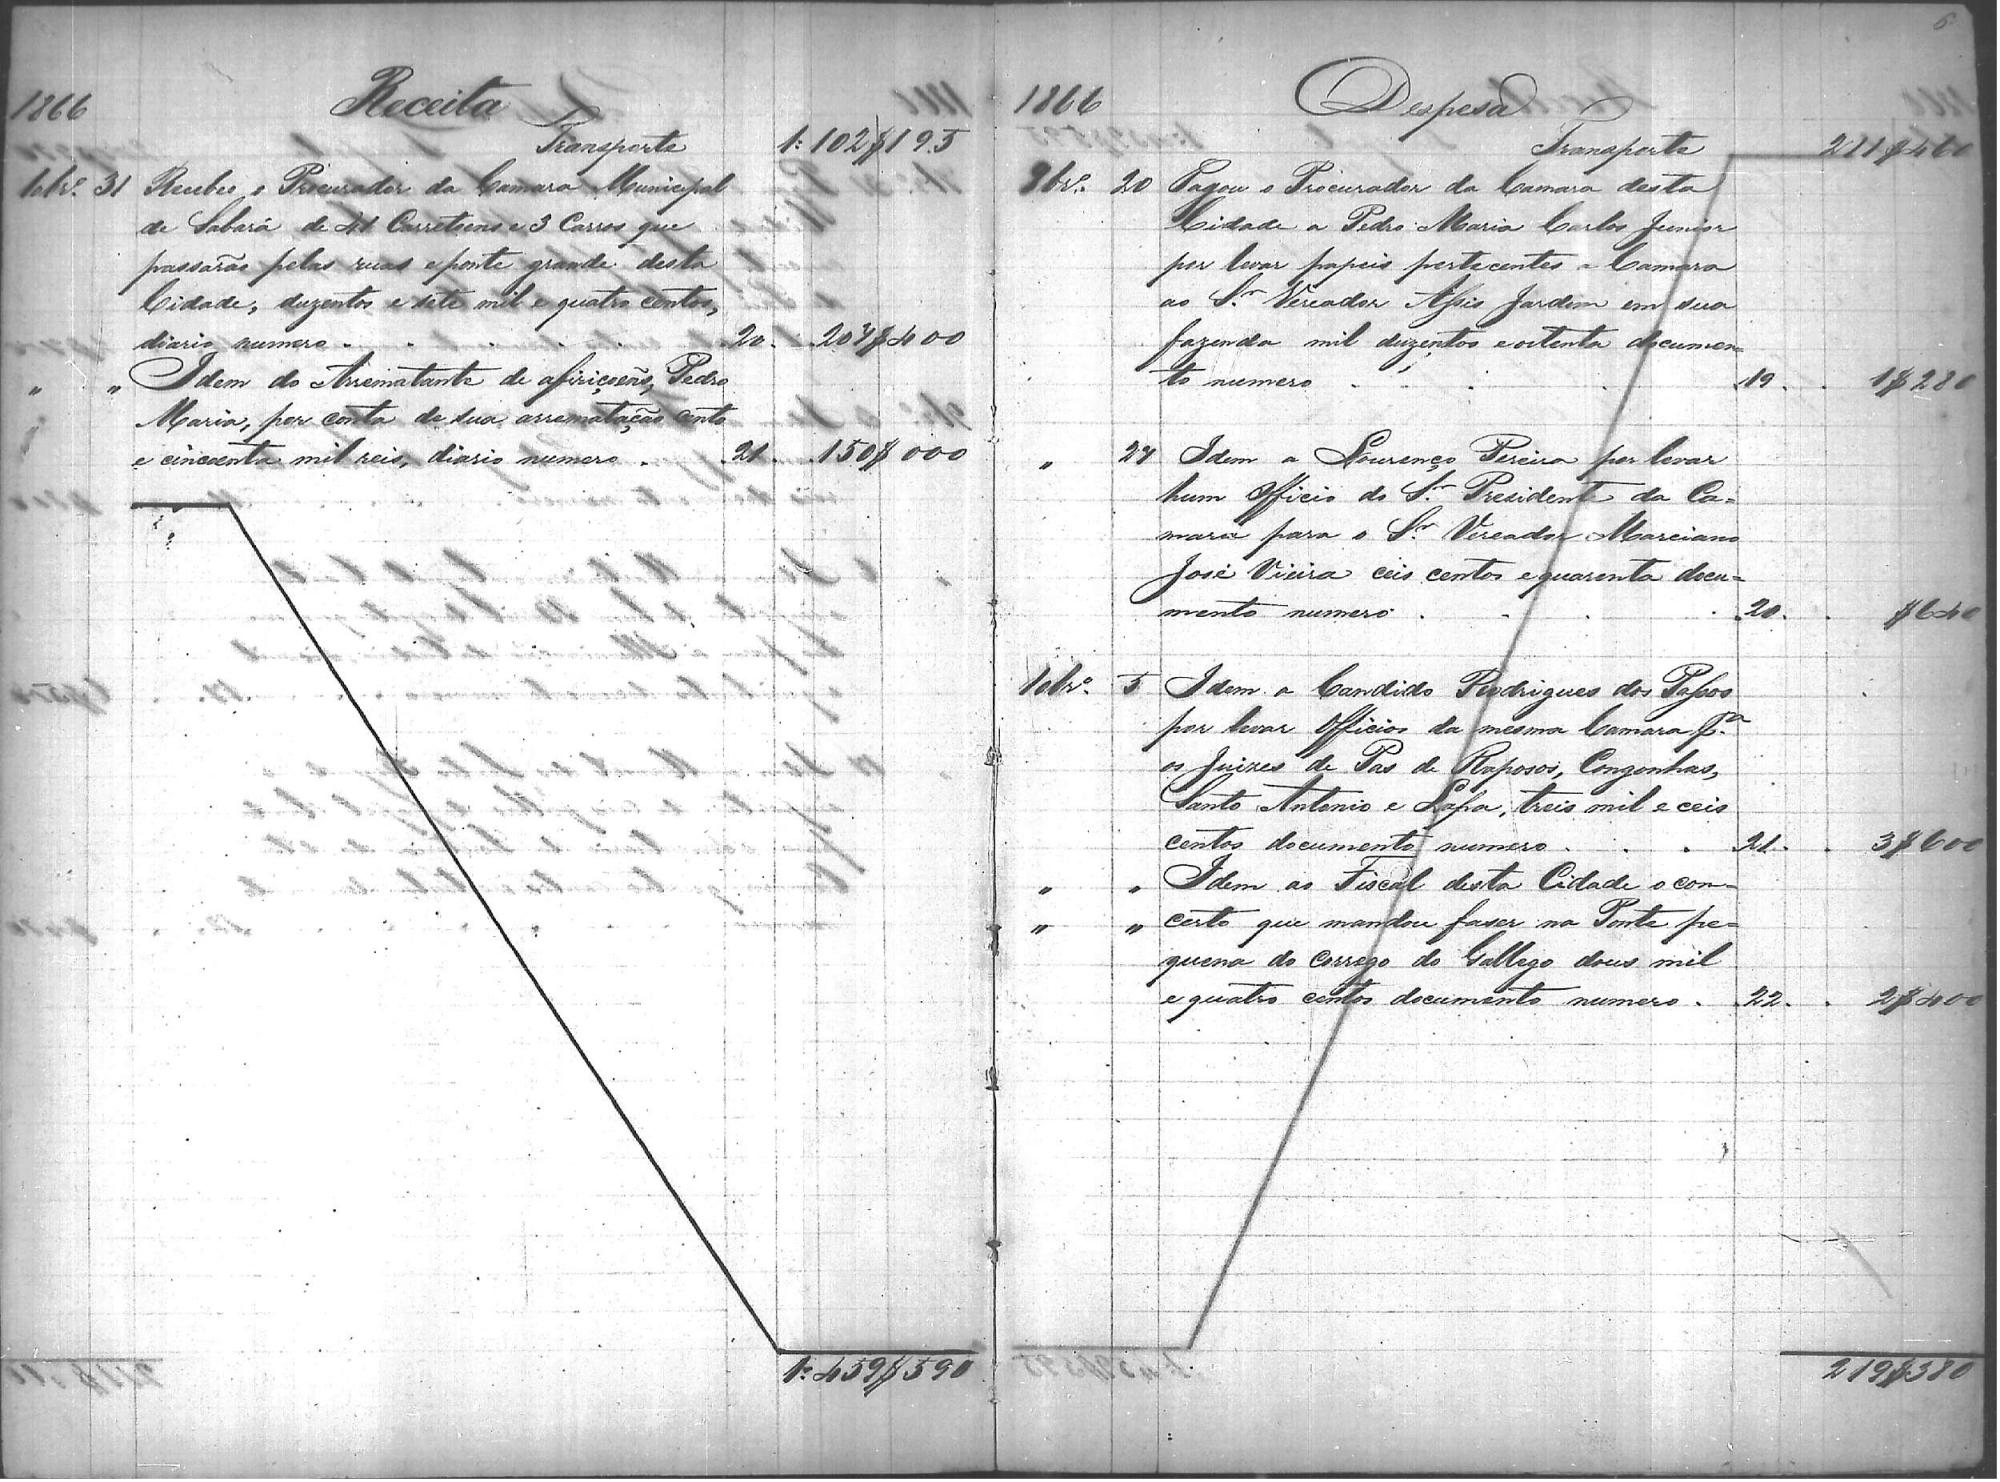 1866 Receita
Transporte 1:102$195
10brº 31 Recebeo o Procurador da Camara Municipal
de Sabará de 41 Carretoens e 3 Carros que
passarão pelas ruas e ponte grande desta
Cidade, duzentos e sete mil e quatro centos,
diario numero . . . . . 20 . 207$400
" " Idem do Arrematante de afiriçoens, Pedro
Maria, por conta de sua arrematação cento
e cincoenta mil reis, diario numero . 21 . 150$000
1:459$590
6
1866 Despesa
Transporte 211$460
9brº 20 Pagou o Procurador da Camara desta
Cidade a Pedro Maria Carlos Junior
por levar papeis pertecentes a Camara
ao Sr Vereador Assis Jardim em sua
fazenda mil duzentos e oitenta documen=
to numero . . . . 19 . . 1$280
" 27 Idem a Lourenço Pereira por levar
hum Officio do Sr Presidente da Ca=
mara para o Sr Vereador Marciano
José Vieira ceis centos e quarenta docu=
mento numero . . . . 20 . . $640
10brº 5 Idem a Candido Rodrigues dos Passos
por levar Officios da mesma Camara pª
os Juizes de Pas de Raposos, Congonhas,
Santo Antonio e Lapa, treis mil e ceis
centos documento numero . . . 21 . . 3$600
" " Idem ao Fiscal desta Cidade o con=
" " certo que mandou faser na Ponte pe=
quena do Corrego do Gallego dous mil
e quatro centos documento numero . 22 . . 2$400
219$380